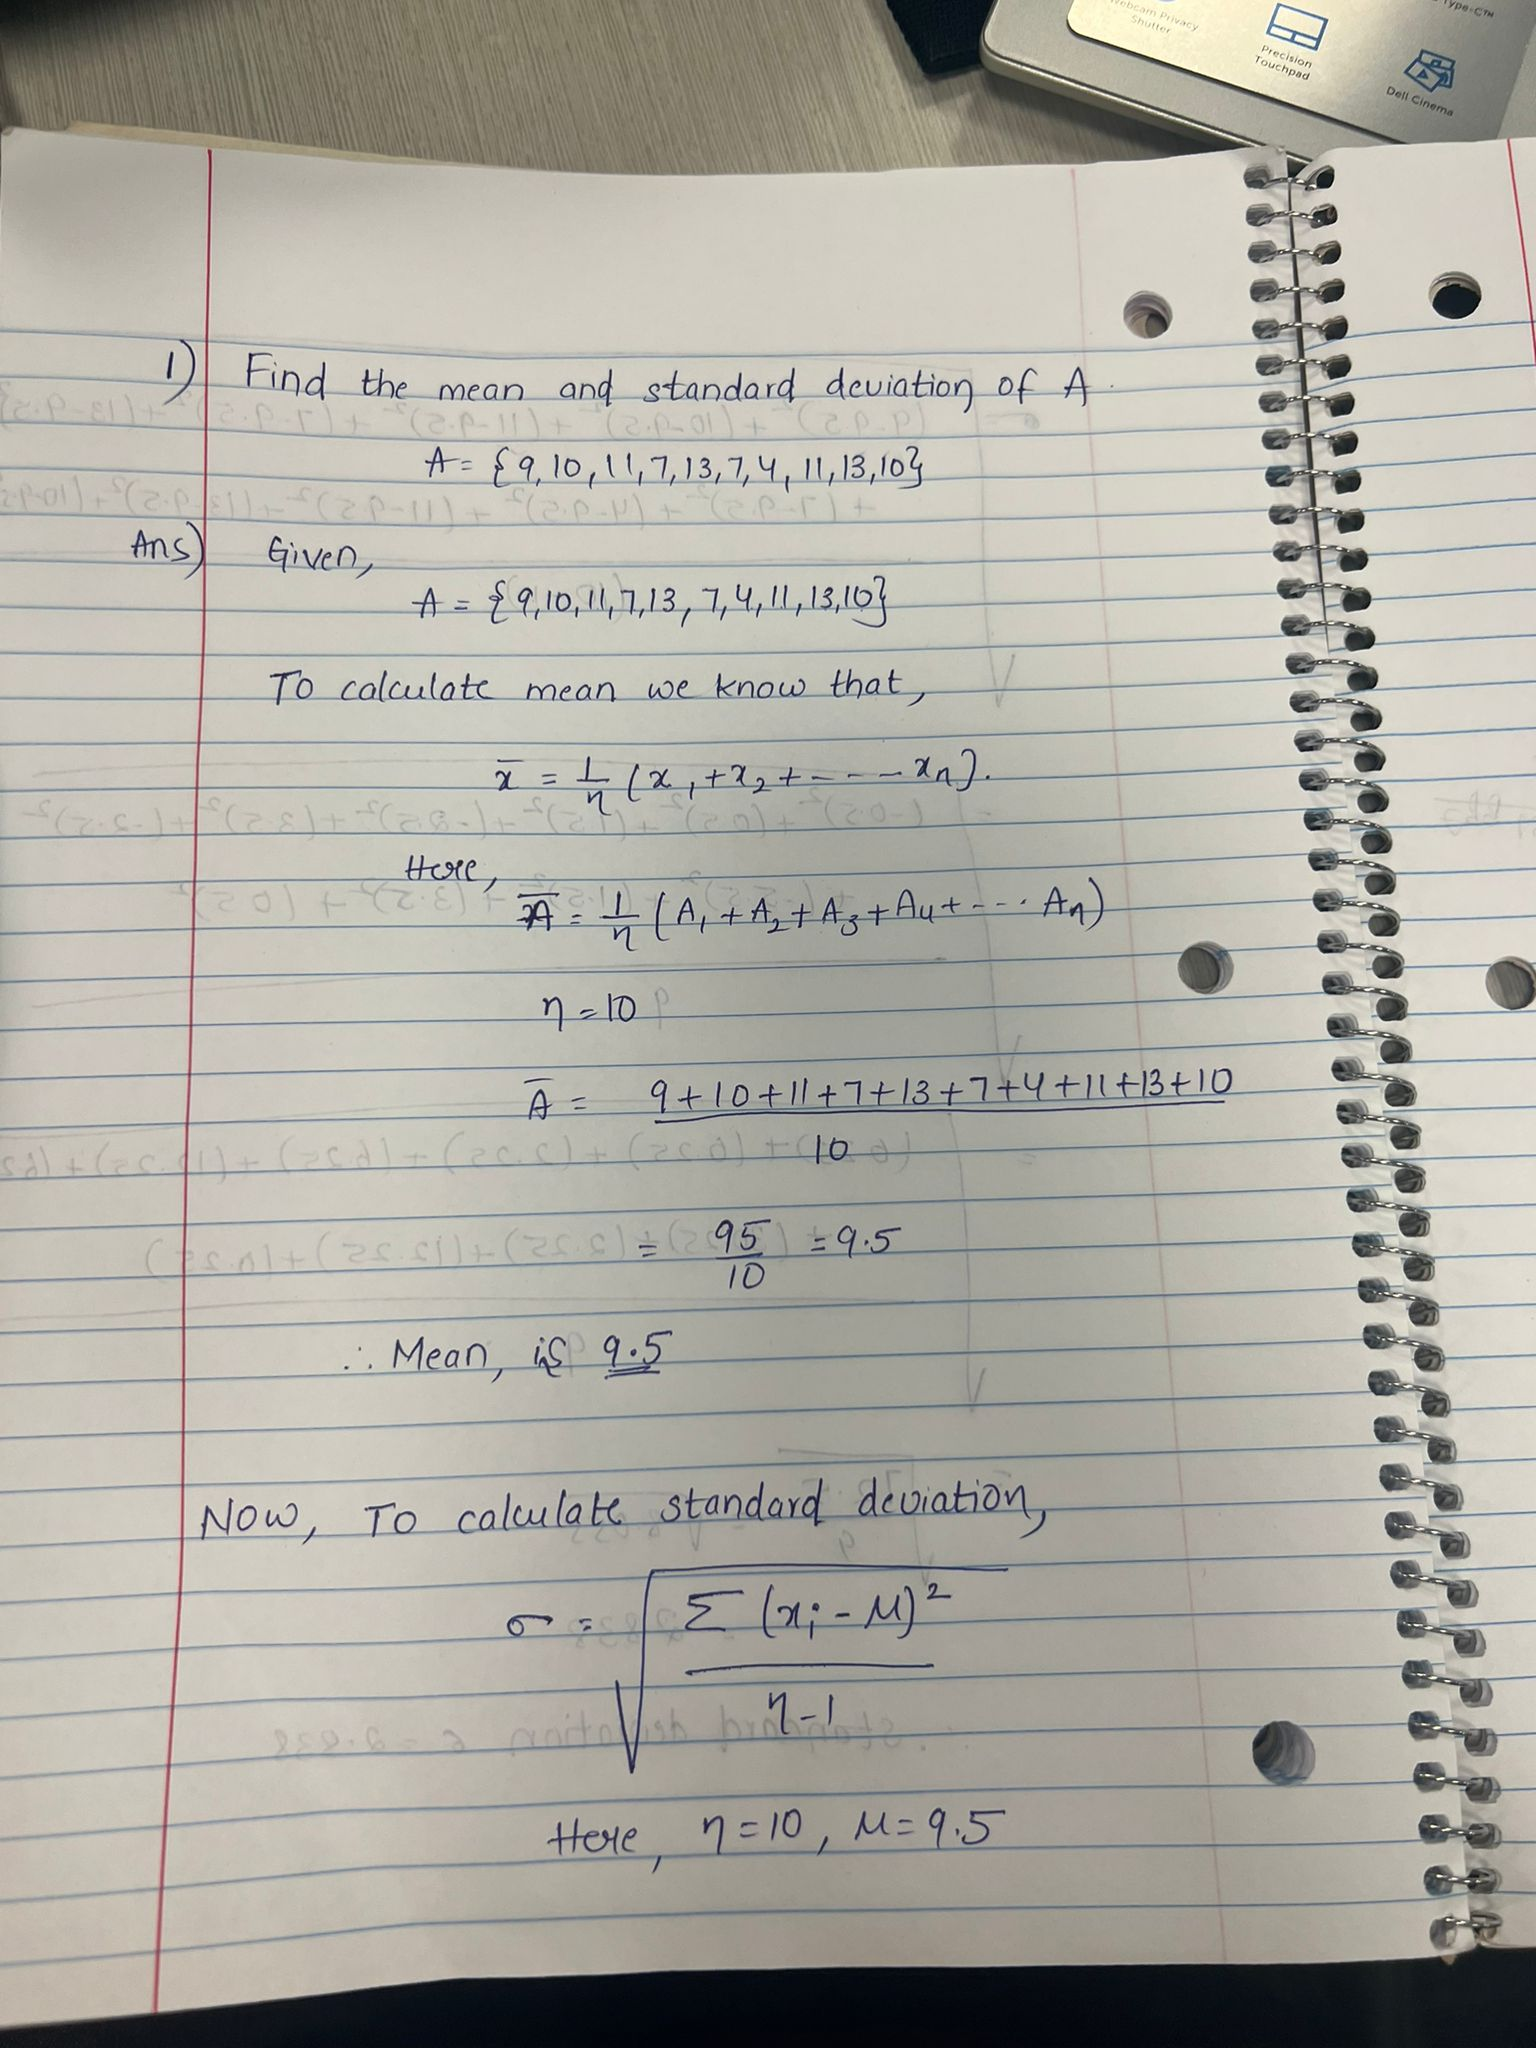 Webcam Privacy
Shutter
Type-C™
Precision
Touchpad
Dell Cinema
1) Find the mean and standard deviation of A.
A = {9, 10, 11, 7, 13, 7, 4, 11, 13, 10}
Ans) Given,
A = {9, 10, 11, 7, 13, 7, 4, 11, 13, 10}
To calculate mean we know that,
x̄ = 1/n (x₁ + x₂ + - - - - xₙ).
Here,
Ā = 1/n (A₁ + A₂ + A₃ + A₄ + - - - Aₙ)
n = 10
Ā = 9+10+11+7+13+7+4+11+13+10 / 10
= 95/10 = 9.5
∴ Mean, is 9.5
Now, To calculate standard deviation,
σ = √(Σ (xᵢ - μ)² / n-1)
Here, n = 10, μ = 9.5